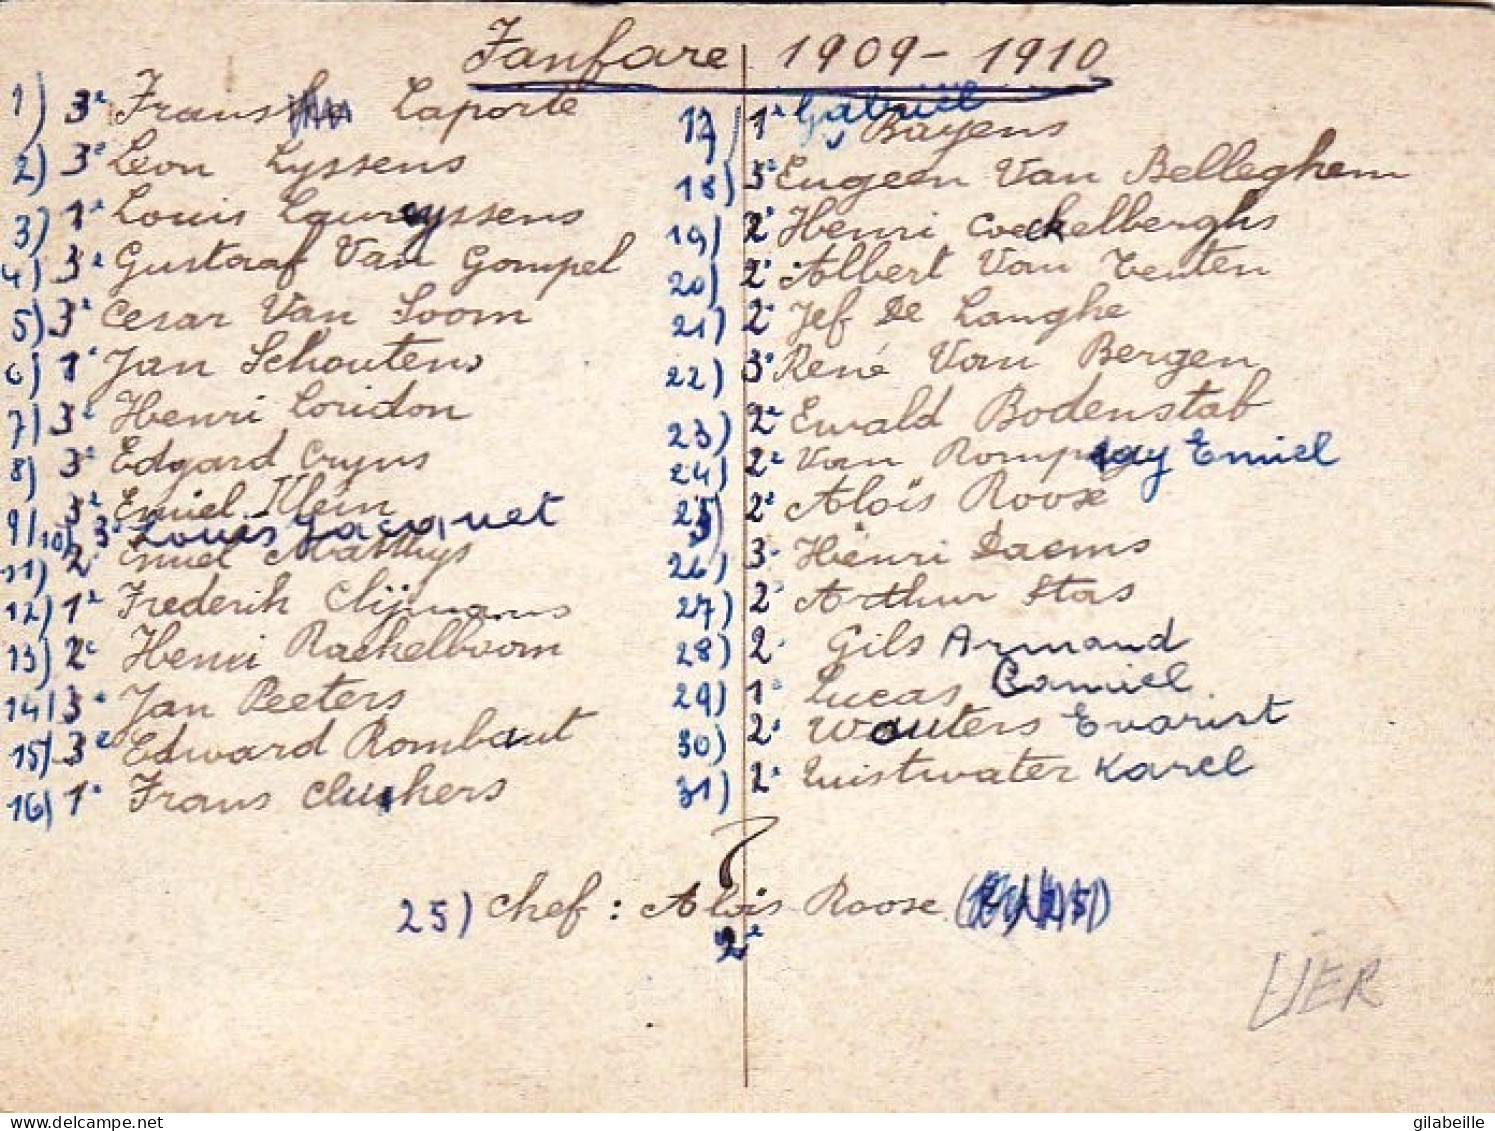 Fanfare 1909-1910
1) 3e Frans Laporte
2) 3e Leon Lyssens
3) 1e Louis Laureyssens
4) 3e Gustaaf Van Gompel
5) 3e Cesar Van Loom
6) 1e Jan Schoutens
7) 3e Henri Loridon
8) 3e Edgard Cryns
9) 3e Emiel Klein
10) 3e Louis Jacquet
11) 2e Emiel Matthys
12) 1e Frederik Clijmans
13) 2e Henri Rackelboom
14) 3e Jan Peeters
15) 3e Edward Rombaut
16) 1e Frans Cluckers
17) 1e Gabriël Bayens
18) 3e Eugeen Van Belleghem
19) 2e Henri Coeckelberghs
20) 2e Albert Van Tenten
21) 2e Jef De Langhe
22) 3e René Van Bergen
23) 2e Ewald Bodenstab
24) 2e Van Rompay Emiel
25) 2e Aloïs Roose
26) 3e Henri Daems
27) 2e Arthur Stas
28) 2e Gils Armand
29) 1e Lucas Camiel
30) 2e Wouters Evarist
31) 2e Luistwater Karel
?
25) Chef : Aloïs Roose
2e
LIER
gilabeille
www.delcampe.net